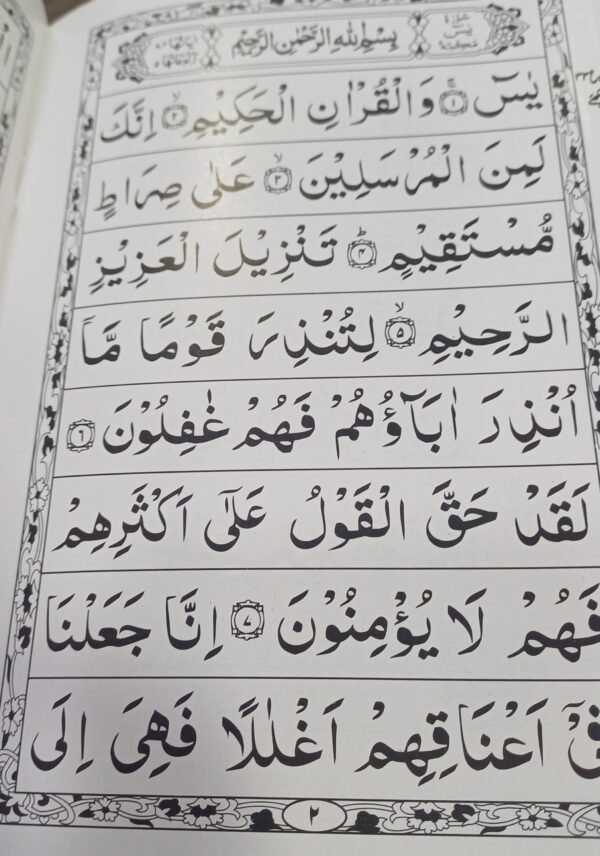 بِسْمِ اللهِ الرَّحْمٰنِ الرَّحِيْمِ
يٰسٓ ﴿١﴾ وَالْقُرْاٰنِ الْحَكِيْمِ ﴿٢﴾ اِنَّكَ
لَمِنَ الْمُرْسَلِيْنَ ﴿٣﴾ عَلٰى صِرَاطٍ
مُّسْتَقِيْمٍ ﴿۴﴾ تَنْزِيْلَ الْعَزِيْزِ
الرَّحِيْمِ ﴿۵﴾ لِتُنْذِرَ قَوْمًا مَّاۤ
اُنْذِرَ اٰبَآؤُهُمْ فَهُمْ غٰفِلُوْنَ ﴿٦﴾
لَقَدْ حَقَّ الْقَوْلُ عَلٰٓى اَكْثَرِهِمْ
فَهُمْ لَا يُؤْمِنُوْنَ ﴿٧﴾ اِنَّا جَعَلْنَا
فِيْٓ اَعْنَاقِهِمْ اَغْلٰلًا فَهِيَ اِلَى
٢